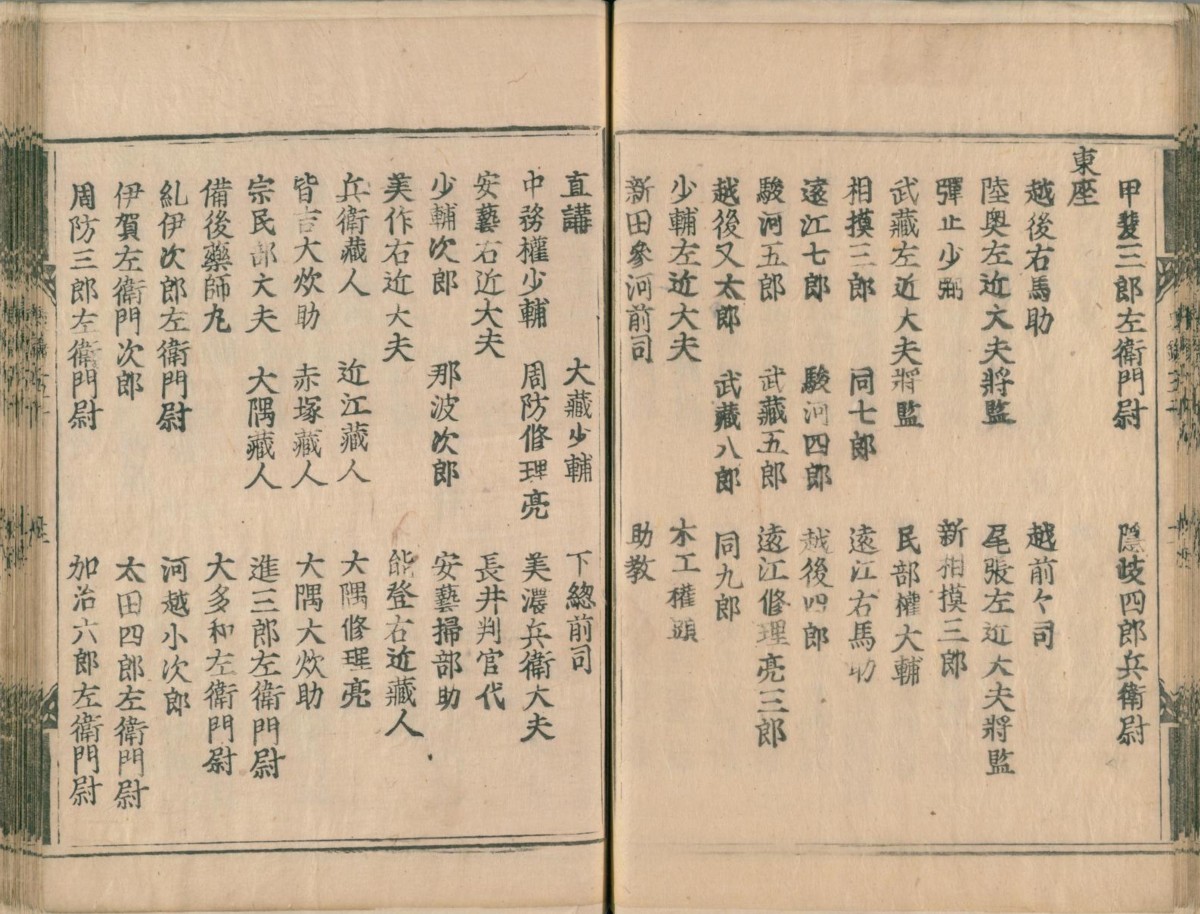 甲斐三郎左衛門尉　隱岐四郎兵衛尉
東座
越後右馬助　越前々司
陸奥左近大夫將監　尾張左近大夫將監
彈正少弼　新相摸三郎
武藏左近大夫將監　民部權大輔
相摸三郎　同七郎　遠江右馬助
遠江七郎　駿河四郎　越後四郎
駿河五郎　武藏五郎　遠江修理亮三郎
越後又太郎　武藏八郎　同九郎
少輔左近大夫　木工權頭
新田參河前司　助教
直講　大藏少輔　下總前司
中務權少輔　周防修理亮　美濃兵衛大夫
安藝右近大夫　長井判官代
少輔次郎　那波次郎　安藝掃部助
美作右近大夫　能登右近藏人
兵衛藏人　近江藏人　大隅修理亮
皆吉大炊助　赤塚藏人　大隅大炊助
宗民部大夫　大隅藏人　進三郎左衛門尉
備後藥師丸　大多和左衛門尉
糺伊次郎左衛門尉　河越小次郎
伊賀左衛門次郎　太田四郎左衛門尉
周防三郎左衛門尉　加治六郎左衛門尉